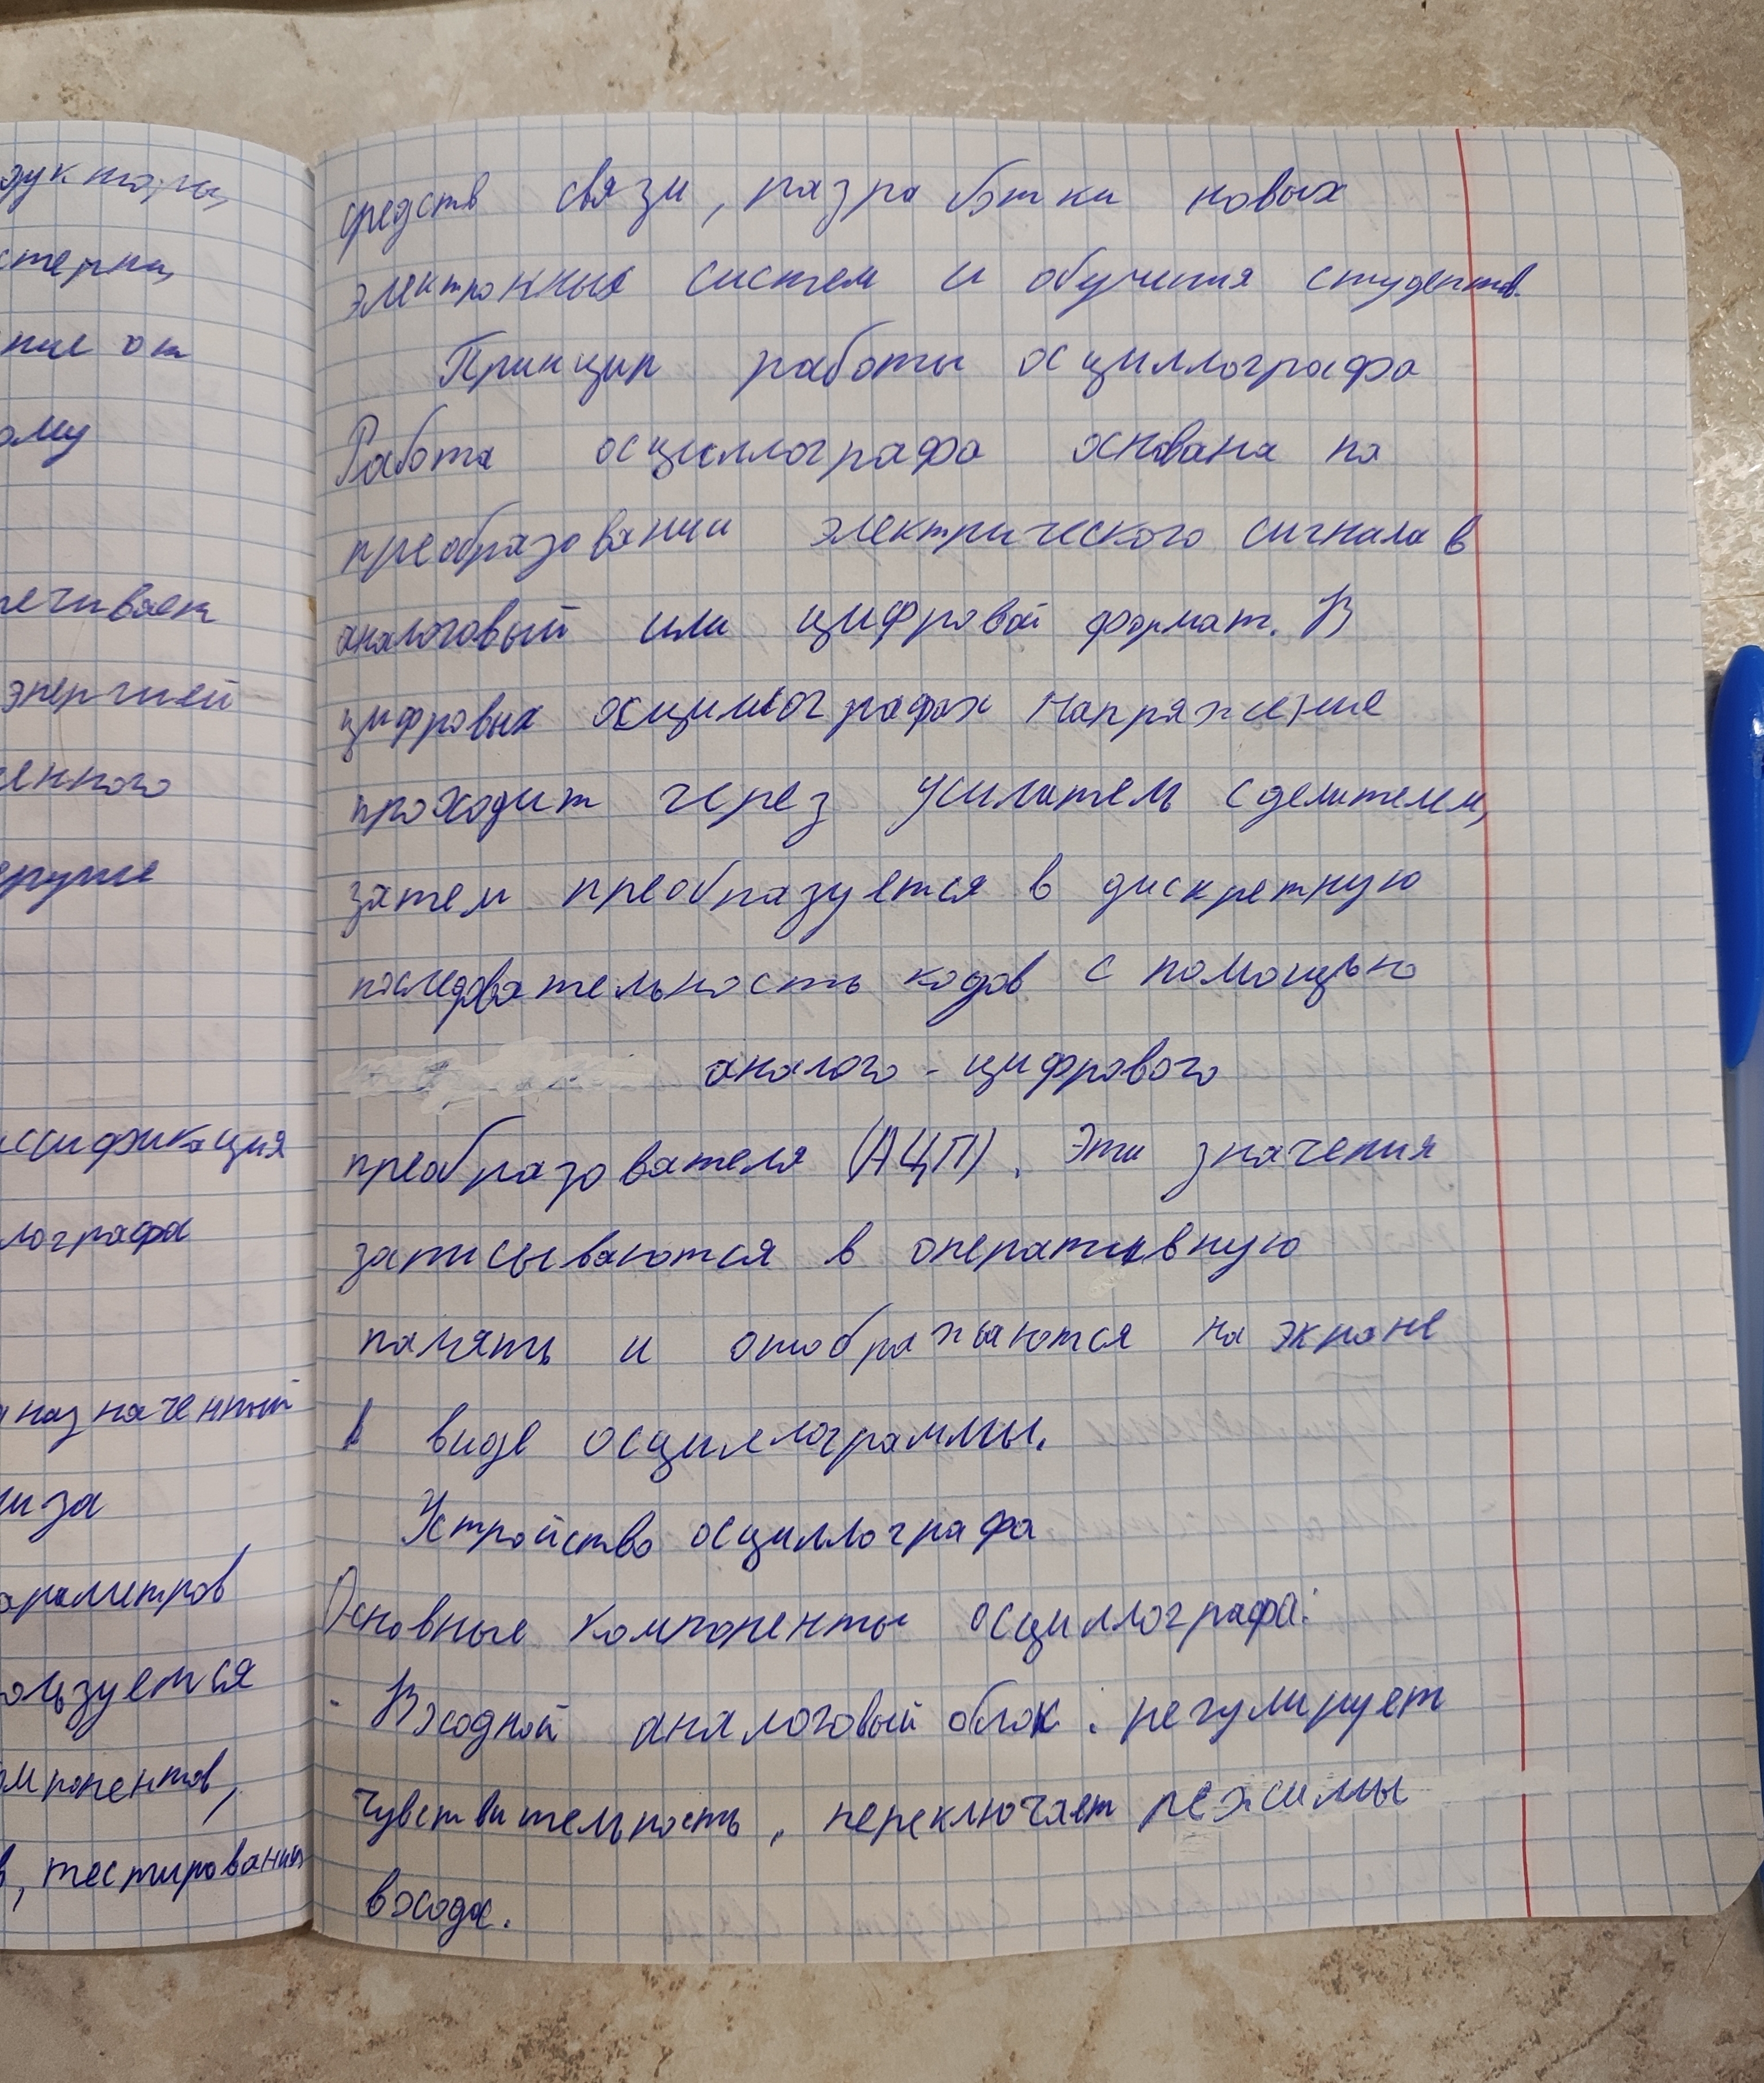 дуктора,
стерна,
ние от
ому
печивает
энергией
ченного
друже
ссификация
лографа
назначенный
лиза
араметров
ользуется
омпонентов,
в, тестирования
средств связи, разработки новых
электронных систем и обучения студентов.
Принцип работы осциллографа
Работа осциллографа основана на
преобразовании электрического сигнала в
аналоговый или цифровой формат. В
цифровых осциллографах напряжение
проходит через усилитель с делителем,
затем преобразуется в дискретную
последовательность кодов с помощью
аналого-цифрового
преобразователя (АЦП). Эти значения
записываются в оперативную
память и отображаются на экране
в виде осциллограммы.
Устройство осциллографа
Основные компоненты осциллографа:
- Входной аналоговый блок: регулирует
чувствительность, переключает режимы
входа.